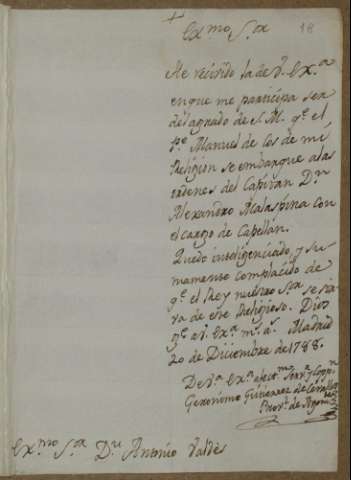 Exmo. Sor.
18
He recivido la de V. Exa.
en que me participa ser
del agrado de S. M. qe. el
Pe. Manuel de los de mi
Religion se embarque a las
ordenes del Capitan Dn.
Alexandro Malaspina con
el cargo de Capellán.
Quedo inteligenciado, y su-
mamente complacido de
qe. el Rey nuestro Sor. se sir-
va de este Religioso. Dios
ge. a V. Exa. ms. as. Madrid
20 de Diciembre de 1788.
De Va. Exa. afectmo. Servr. y Cappn.
Geronimo Gutierrez de Cevallos
Provl. de Agonizes
Exmo. Sor. Dn. Antonio Valdès